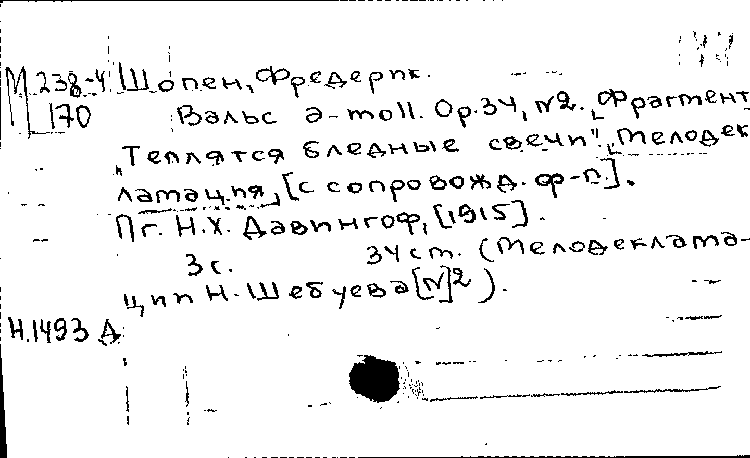 М 238-4 Шопен, Фредерик.
170 Вальс a-moll. Op.34, №2. Фрагмент
„Теплятся бледные свечи“. Мелодек-
ламация, [с сопровожд. ф-п.].
Пг. Н.Х. Давингоф, [1915].
3с. 34см. (Мелодеклама-
ции Н. Шебуева [№]2).
Н.1493 Д